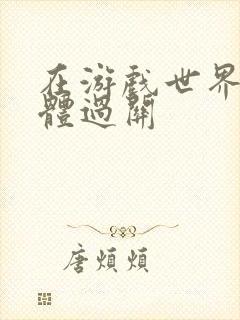 在游戏世界
體過關
唐煩煩